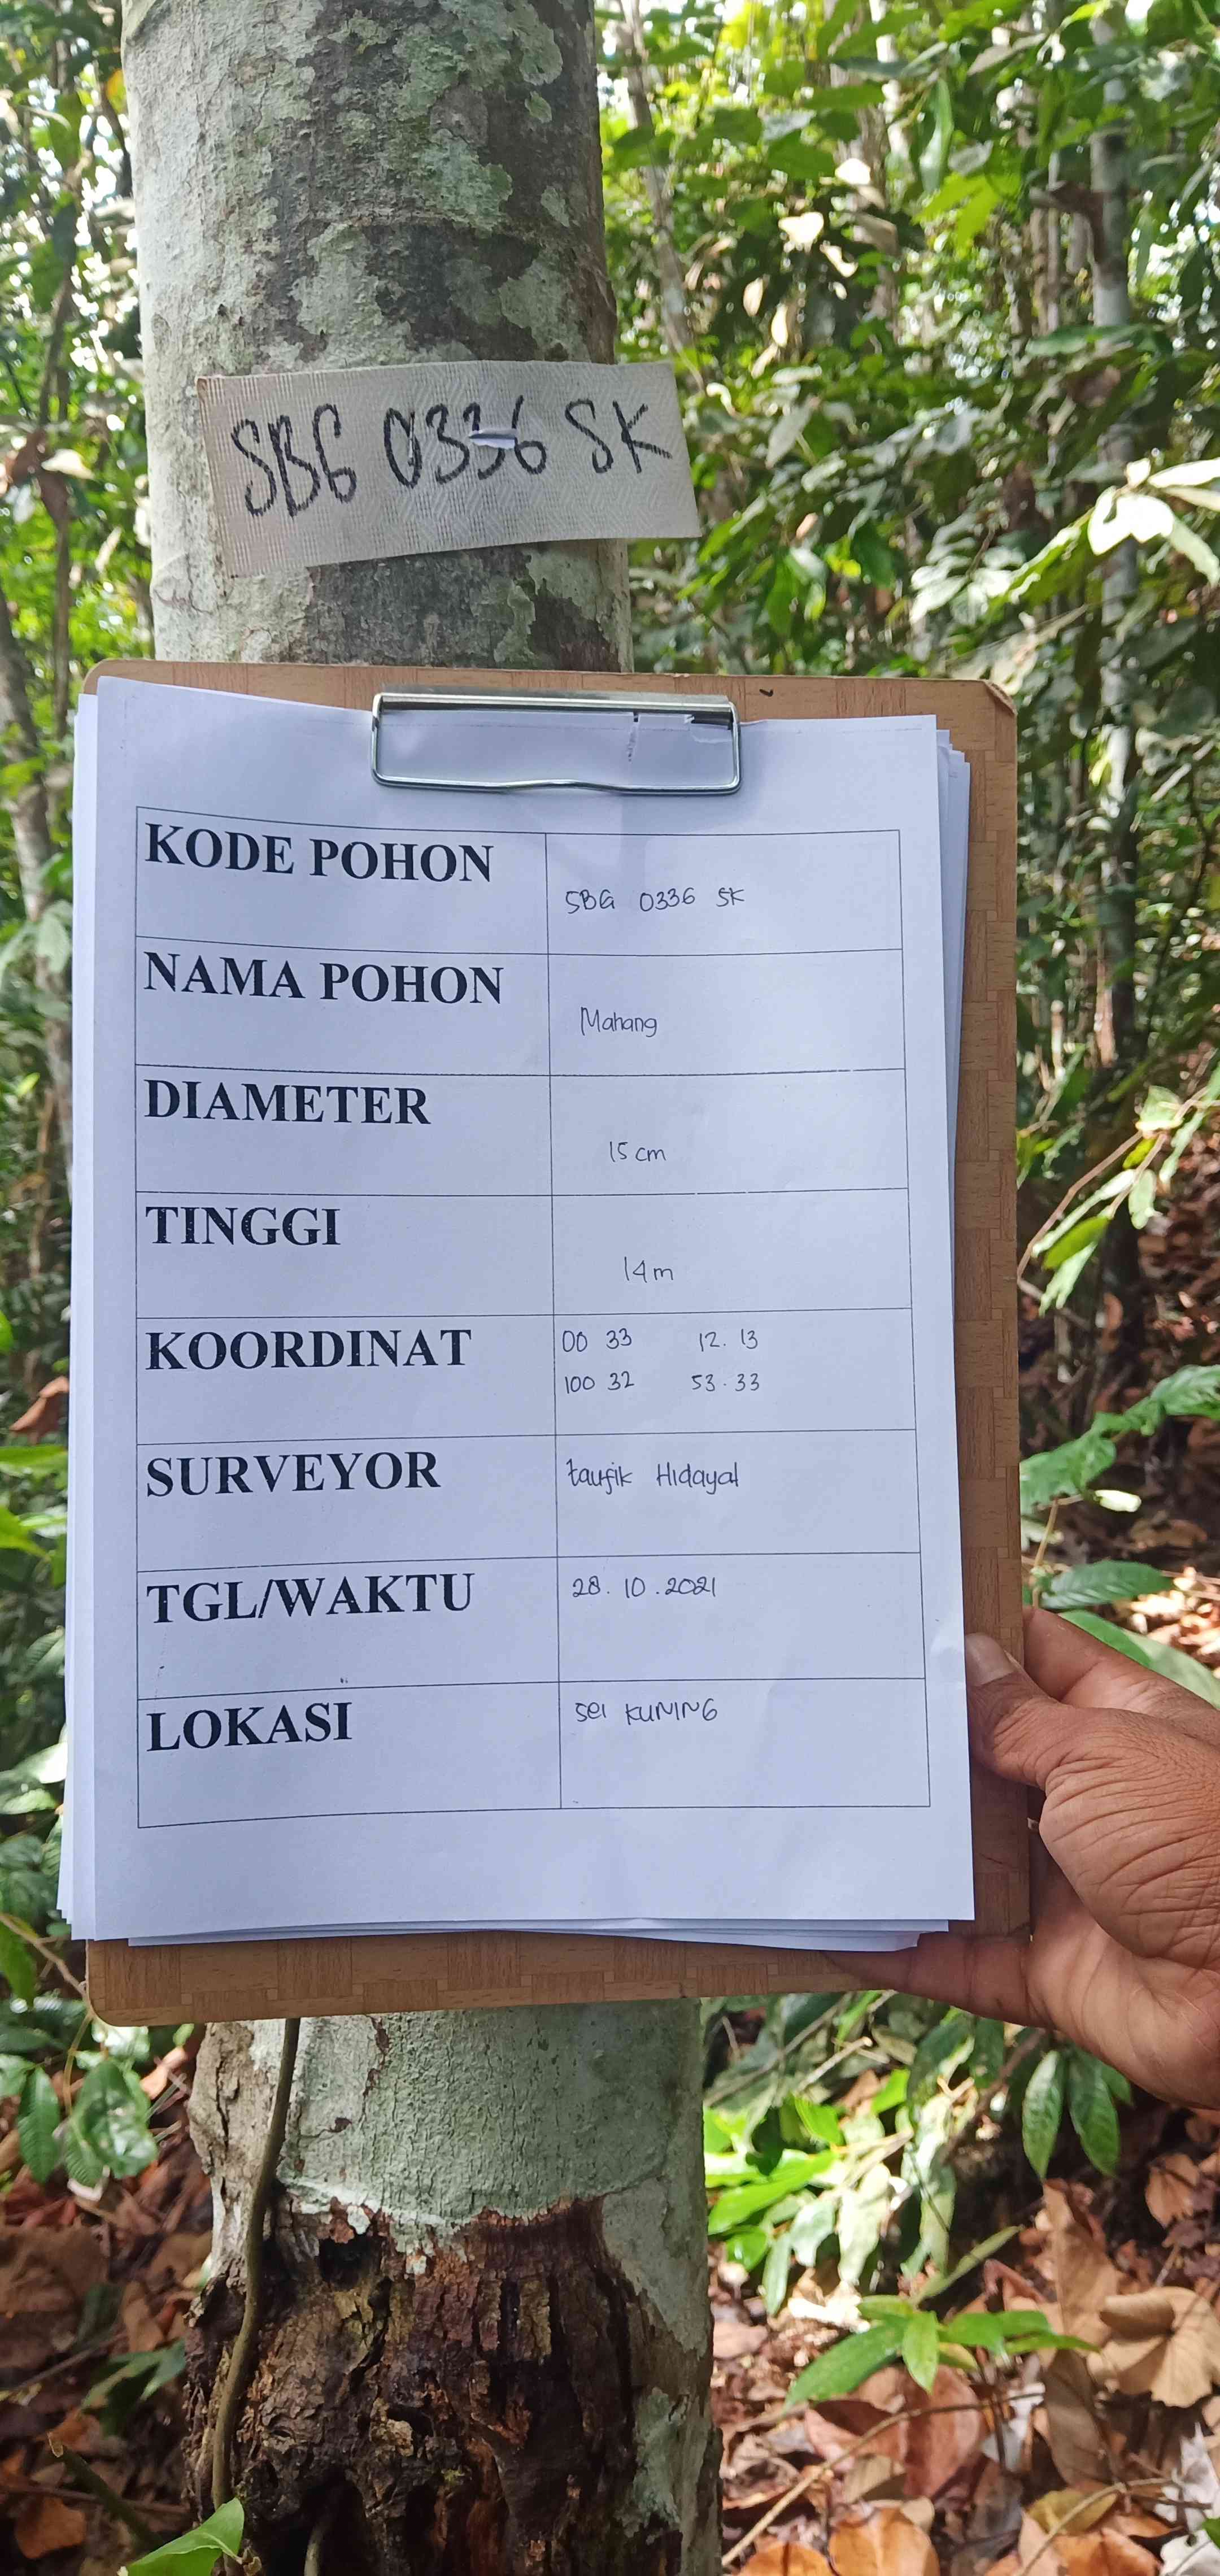 SBG 0336 SK
KODE POHON
SBG 0336 SK
NAMA POHON
Mahang
DIAMETER
15 cm
TINGGI
14 m
KOORDINAT
00 33 12. 13
100 32 53. 33
SURVEYOR
taufik Hidayat
TGL/WAKTU
28. 10. 2021
LOKASI
sei KUNING